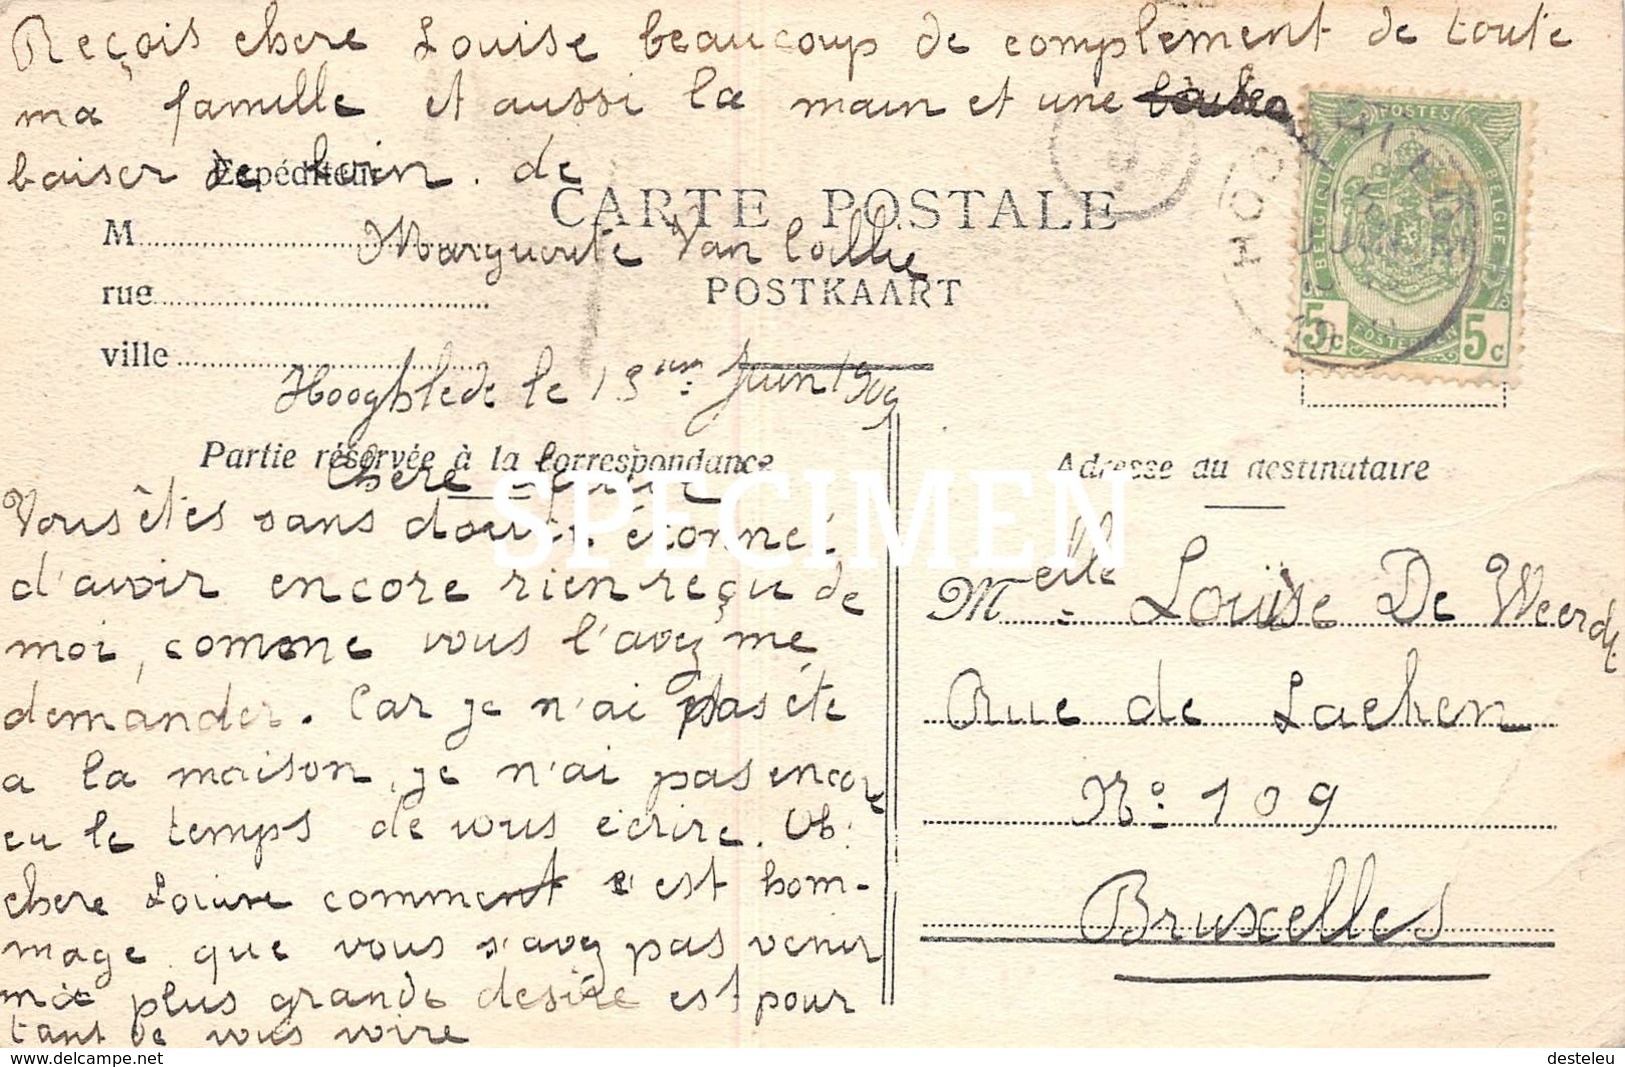 Reçois chere Louise beaucoup de complement de toute
ma famille et aussi la main et une
baiser de loin. de
Expéditeur
CARTE POSTALE
M Marguerite Van Coillie
rue
POSTKAART
ville
Hooghlede le 13 eme Juin 1909
Partie réservée à la correspondance
chere
Vous êtes sans doute étonnet
d'avoir encore rien reçu de
moi, comme vous l'avez me
demander. Car je n'ai pas éte
a la maison, je n'ai pas encore
eu le temps de vous écrire. Oh!
chere Louise comment c'est hom-
mage que vous n'avez pas venir
plus grande desire est pour
tant de vous voire
SPECIMEN
Adresse du destinataire
Melle Louise De Weerdt
Rue de Laeken
No 109
Bruxelles
POSTES
BELGIQUE
BELGIË
5c 5c
Delcampe.net
desteleu